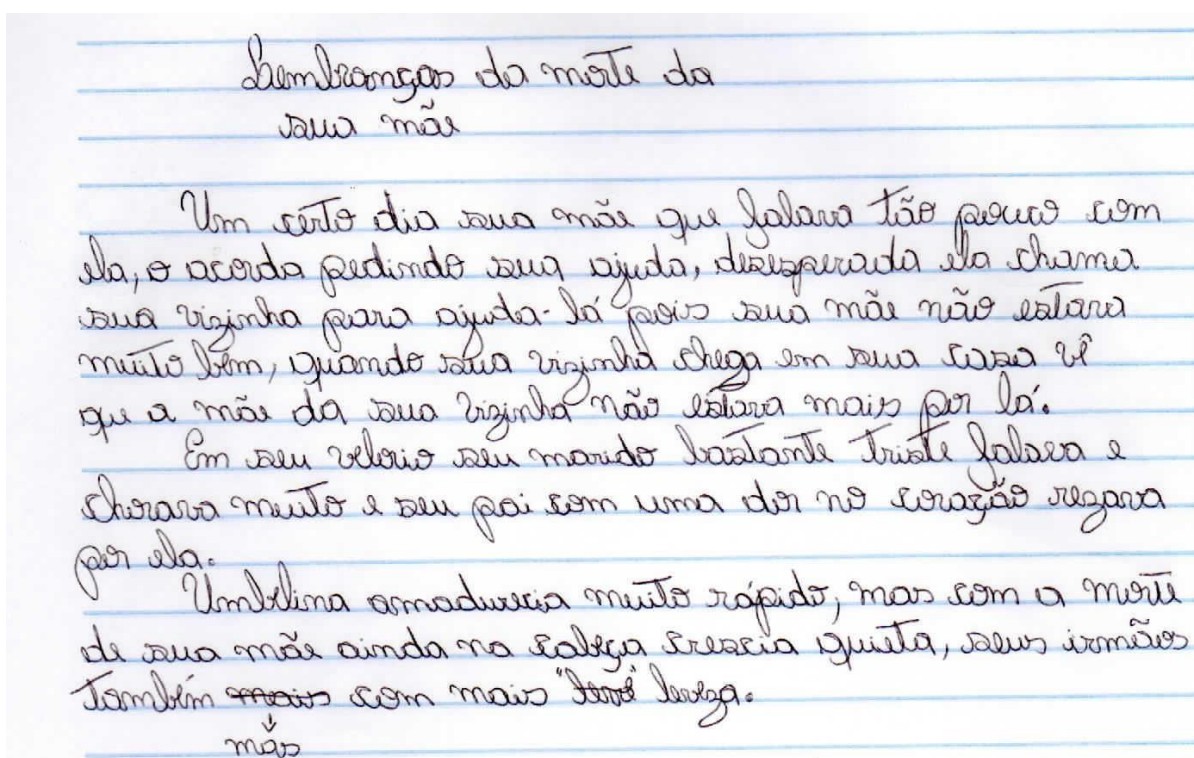 Lembranças da morte da
sua mãe
Um certo dia sua mãe que falava tão pouco com
ela, o acorda pedindo sua ajuda, desesperada ela chama
sua vizinha para ajuda-lá pois sua mãe não estava
muito bem, quando sua vizinha chega em sua casa vê
que a mãe da sua vizinha não estava mais por lá.
Em seu velorio seu marido bastante triste falava e
chorava muito e seu pai com uma dor no coração rezava
por ela.
Umbelina amadurecia muito rápido, mas com a morte
de sua mãe ainda na cabeça crescia quieta, seus irmãos
também mais com mais "leve" leveza.
mas